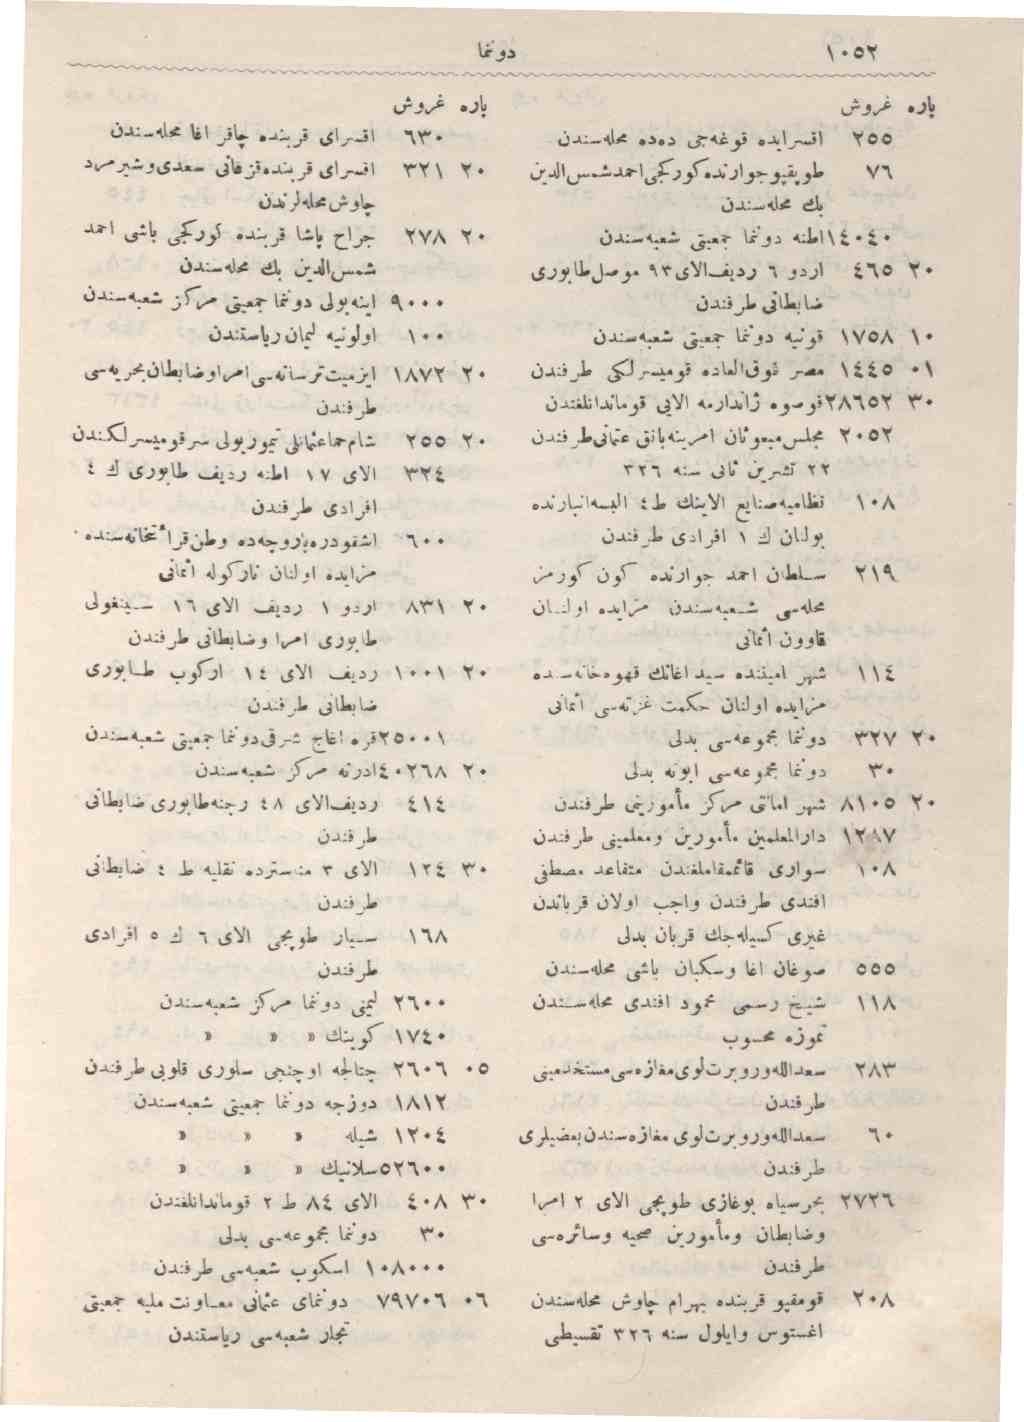 ١٠٥٢ دوننما
پاره غروش
٢٥٥ اقسرایده قوغه‌جی ده‌ده محله‌سندن
٧٦ طوپقپو جوارنده کورکجی احمد شمس‌الدین
بك محله‌سندن
١٤٠٤٠ اطنه دوننما جمعیتی شعبه‌سندن
٢٠ ٤٦٥ اردو ٦ ردیف الای ٩٣ موصل طابوری
ضابطانی طرفندن
١٠ ١٧٥٨ قونیه دوننما جمعیتی شعبه‌سندن
٠١ ١٤٤٥ مصر فوق‌العاده قومیسرلکی طرفندن
٣٠ ٢٨٦٥٢ قوصوه ژاندارمه الایی قوماندانلغندن
٢٠٥٢ مجلس مبعوثان امرینه بانق عثمانی طرفندن
٢٢ تشرین ثانی سنه ٣٢٦
١٠٨ نظامیه صنایع الاینك ط ٤ البسه انبارنده
بولنان ك ١ افرادی طرفندن
٢١٩ سلطان احمد جوارنده کون کورمز
محله‌سی شعبه‌سندن مزایده اولنان
قاوون اثمانی
١١٤ شهر امیننده سید اغانك قهوه‌خانه‌سنده
مزایده اولنان حکمت غزته‌سی اثمانی
٢٠ ٣٢٧ دوننما مجموعه‌سی بدلی
٣٠ دوننما مجموعه‌سی ابونه بدلی
٢٠ ٨١٠٥ شهر امانتی مرکز مأمورینی طرفندن
١٢٨٧ دارالمعلمین مأمورین و معلمینی طرفندن
١٠٨ سواری قائممقاملغندن متقاعد مصطفی
افندی طرفندن واجب اولان قرباندن
غیری کسیله‌جك قربان بدلی
٥٥٥ صوغان اغا وسکبان باشی محله‌سندن
١١٨ شیخ رسمی محمود افندی محله‌سندن
تموزه محسوب
٢٨٣ سعدالله وروبرت لوی مغازه‌سی مستخدمینی
طرفندن
٦٠ سعدالله وروبرت لوی مغازه‌سندن بعضیلری
طرفندن
٢٧٢٦ بحر سیاه بوغازی طوپجی الای ٢ امرا
وضابطان ومأمورین صحیه وسائره‌سی
طرفندن
٢٠٨ قومقپو قربنده بهرام چاوش محله‌سندن
اغستوس وایلول سنه ٣٢٦ تقسیطی
پاره غروش
٦٣٠ اقسرای قربنده چاقر اغا محله‌سندن
٢٠ ٣٢١ اقسرای قربنده قزغانی سعدی وشیرمرد
چاوش محله‌لرندن
٢٠ ٢٧٨ جراح پاشا قربنده کورکجی باشی احمد
شمس‌الدین بك محله‌سندن
٩٠٠٠ اینه‌بولی دوننما جمعیتی مرکز شعبه‌سندن
١٠٠ اولونیه لیمان ریاستندن
٢٠ ١٨٧٢ ایزمیت ترسانه‌سی امرا وضابطان بحریه‌سی
طرفندن
٢٠ ٢٥٥ شام حما عثمانلی تیموریولی سرقومیسرلکندن
٣٢٤ الای ١٧ اطنه ردیف طابوری ك ٤
افرادی طرفندن
٦٠٠ اشقودره پاروچه‌ده وطن قرائتخانه‌سنده
مزایده اولنان نارکوله اثمانی
٢٠ ٨٣١ اردو ١ ردیف الای ١٦ سینغولی
طابوری امرا وضابطانی طرفندن
٢٠ ١٠٠١ ردیف الای ١٤ ارکوب طابوری
ضابطانی طرفندن
٢٥٠٠١ قره اغاج شرقی دوننما جمعیتی شعبه‌سندن
٢٠ ٤٠٢٦٨ ادرنه مرکز شعبه‌سندن
٤١٤ ردیف الای ٤٨ رجنه طابوری ضابطانی
طرفندن
٣٠ ١٢٤ الای ٣ مناسترده نقلیه ط ٤ ضابطانی
طرفندن
١٦٨ سیار طوپجی الای ٦ ك ٥ افرادی
طرفندن
٢٦٠٠ لیمنی دوننما مرکز شعبه‌سندن
١٧٤٠ کوینك » » »
٠٥ ٢٦٠٦ چتالجه اوچنجی سلوری قلوبی طرفندن
١٨١٢ دوزجه دوننما جمعیتی شعبه‌سندن
١٢٠٤ شیله » » »
٥٢٦٠٠ سلانیك » » »
٣٠ ٤٠٨ الای ٨٤ ط ٢ قوماندانلغندن
٣٠ دوننما مجموعه‌سی بدلی
١٠٨٠٠٠ اسکوب شعبه‌سی طرفندن
٠٦ ٧٩٧٠٦ دوننمای عثمانی معاونت ملیه جمعیتی
تجار شعبه‌سی ریاستندن